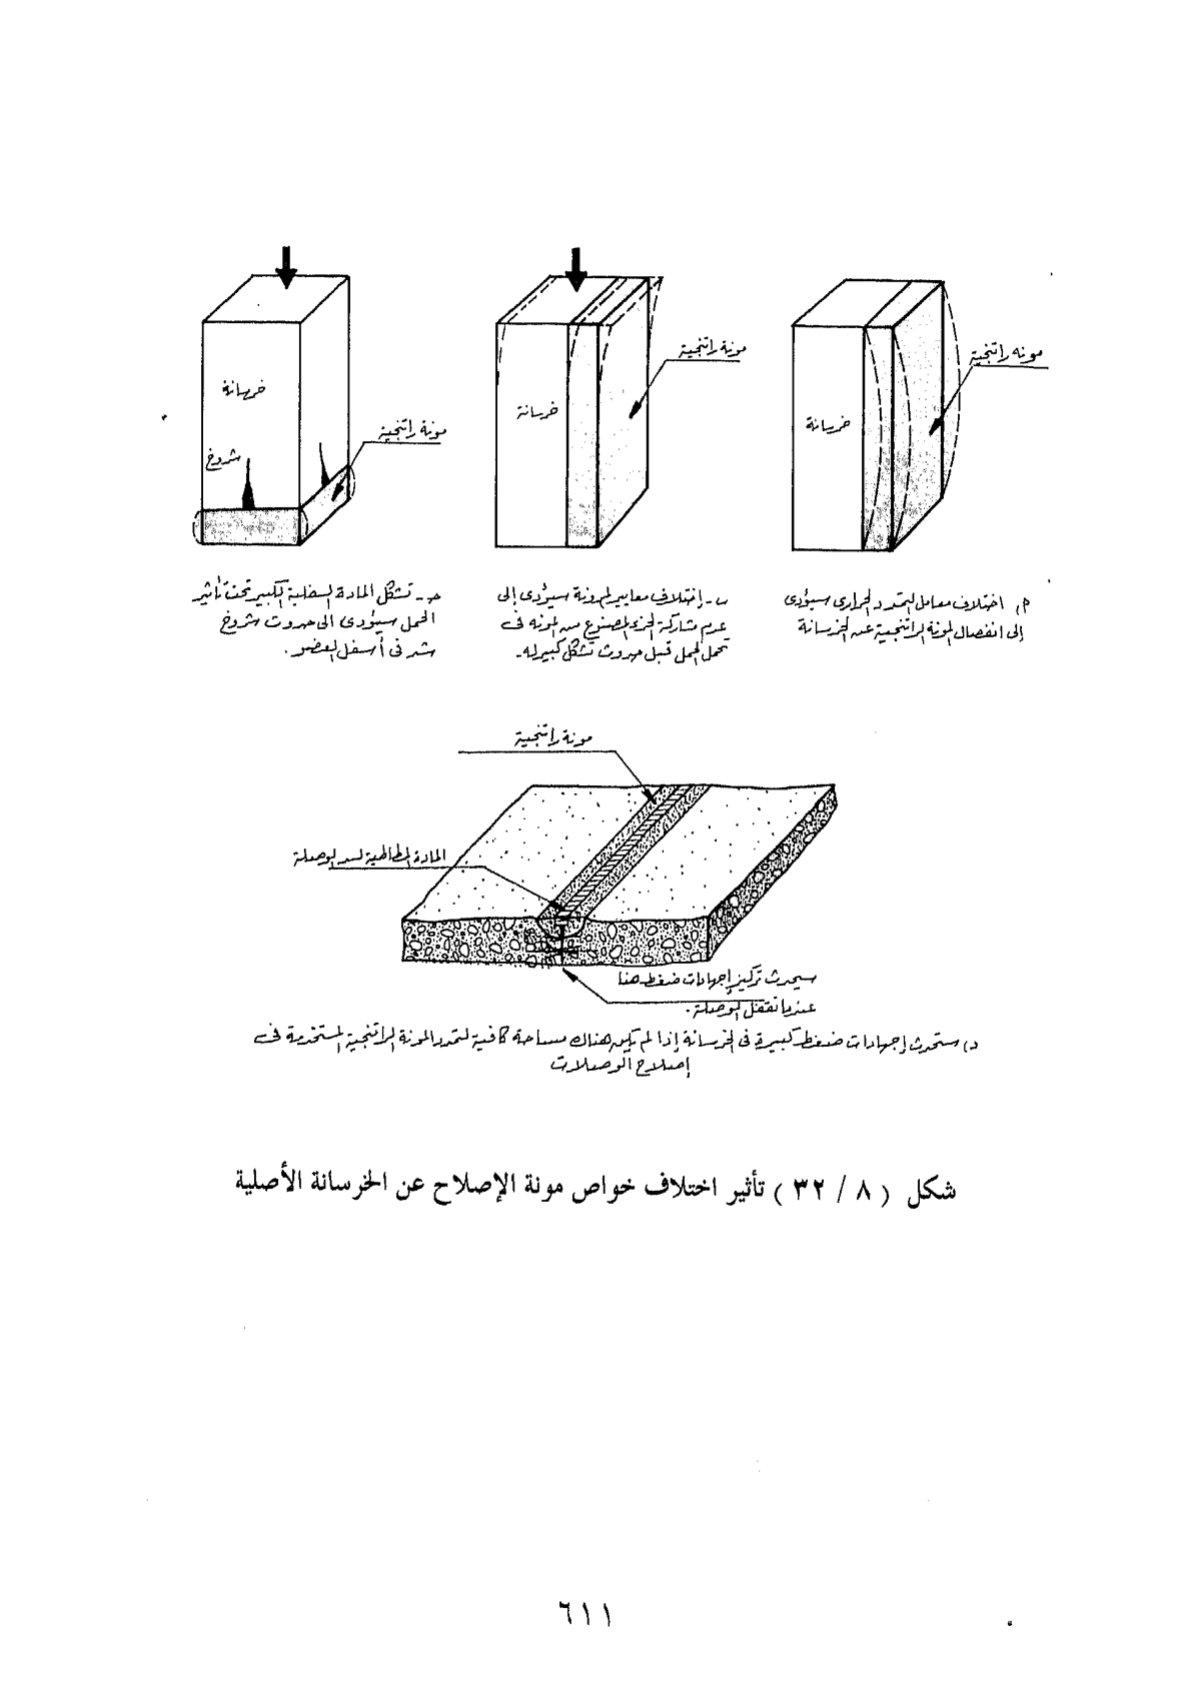 مونة راتنجية
خرسانة
أ, اختلاف معامل التمدد الحرارى سيؤدى
إلى انفصال المونة الراتنجية عن الخرسانة
مونة راتنجية
خرسانة
ب - إختلاف معايير المرونة سيؤدى إلى
عدم مشاركة الجزء المصنوع من المونه فى
تحمل الحمل قبل حدوث تشكل كبير له -
خرسانة
مونة راتنجية
شروخ
حـ - تشكل المادة السفلية الكبير تحت تأثير
الحمل سيؤدى الى حدوث شروخ
شد فى أسفل العضو .
مونة راتنجية
المادة المطاطية لسد الوصلة
سيحدث تركيز إجهادات ضغط هنا
عندما تقفل الوصلة .
د) ستحدث إجهادات ضغط كبيرة فى الخرسانة إذا لم تكن هناك مساحة كافية لتمدد المونة الراتنجية المستخدمة فى
إصلاح الوصلات
شكل ( ٨ / ٣٢ ) تأثير اختلاف خواص مونة الإصلاح عن الخرسانة الأصلية
٦١١